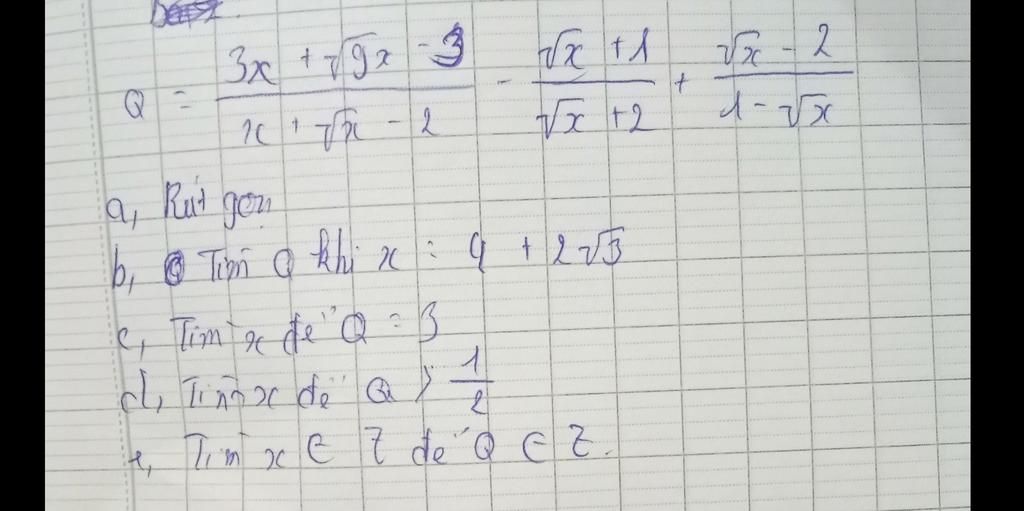 Q = \frac{3x + \sqrt{9x} - 3}{x + \sqrt{x} - 2} - \frac{\sqrt{x} + 1}{\sqrt{x} + 2} + \frac{\sqrt{x} - 2}{1 - \sqrt{x}}
a, Rút gọn
b, Tìm Q khi x = 4 + 2\sqrt{3}
c, Tìm x để Q = 3
d, Tìm x để Q > \frac{1}{2}
e, Tìm x ∈ Z để Q ∈ Z.